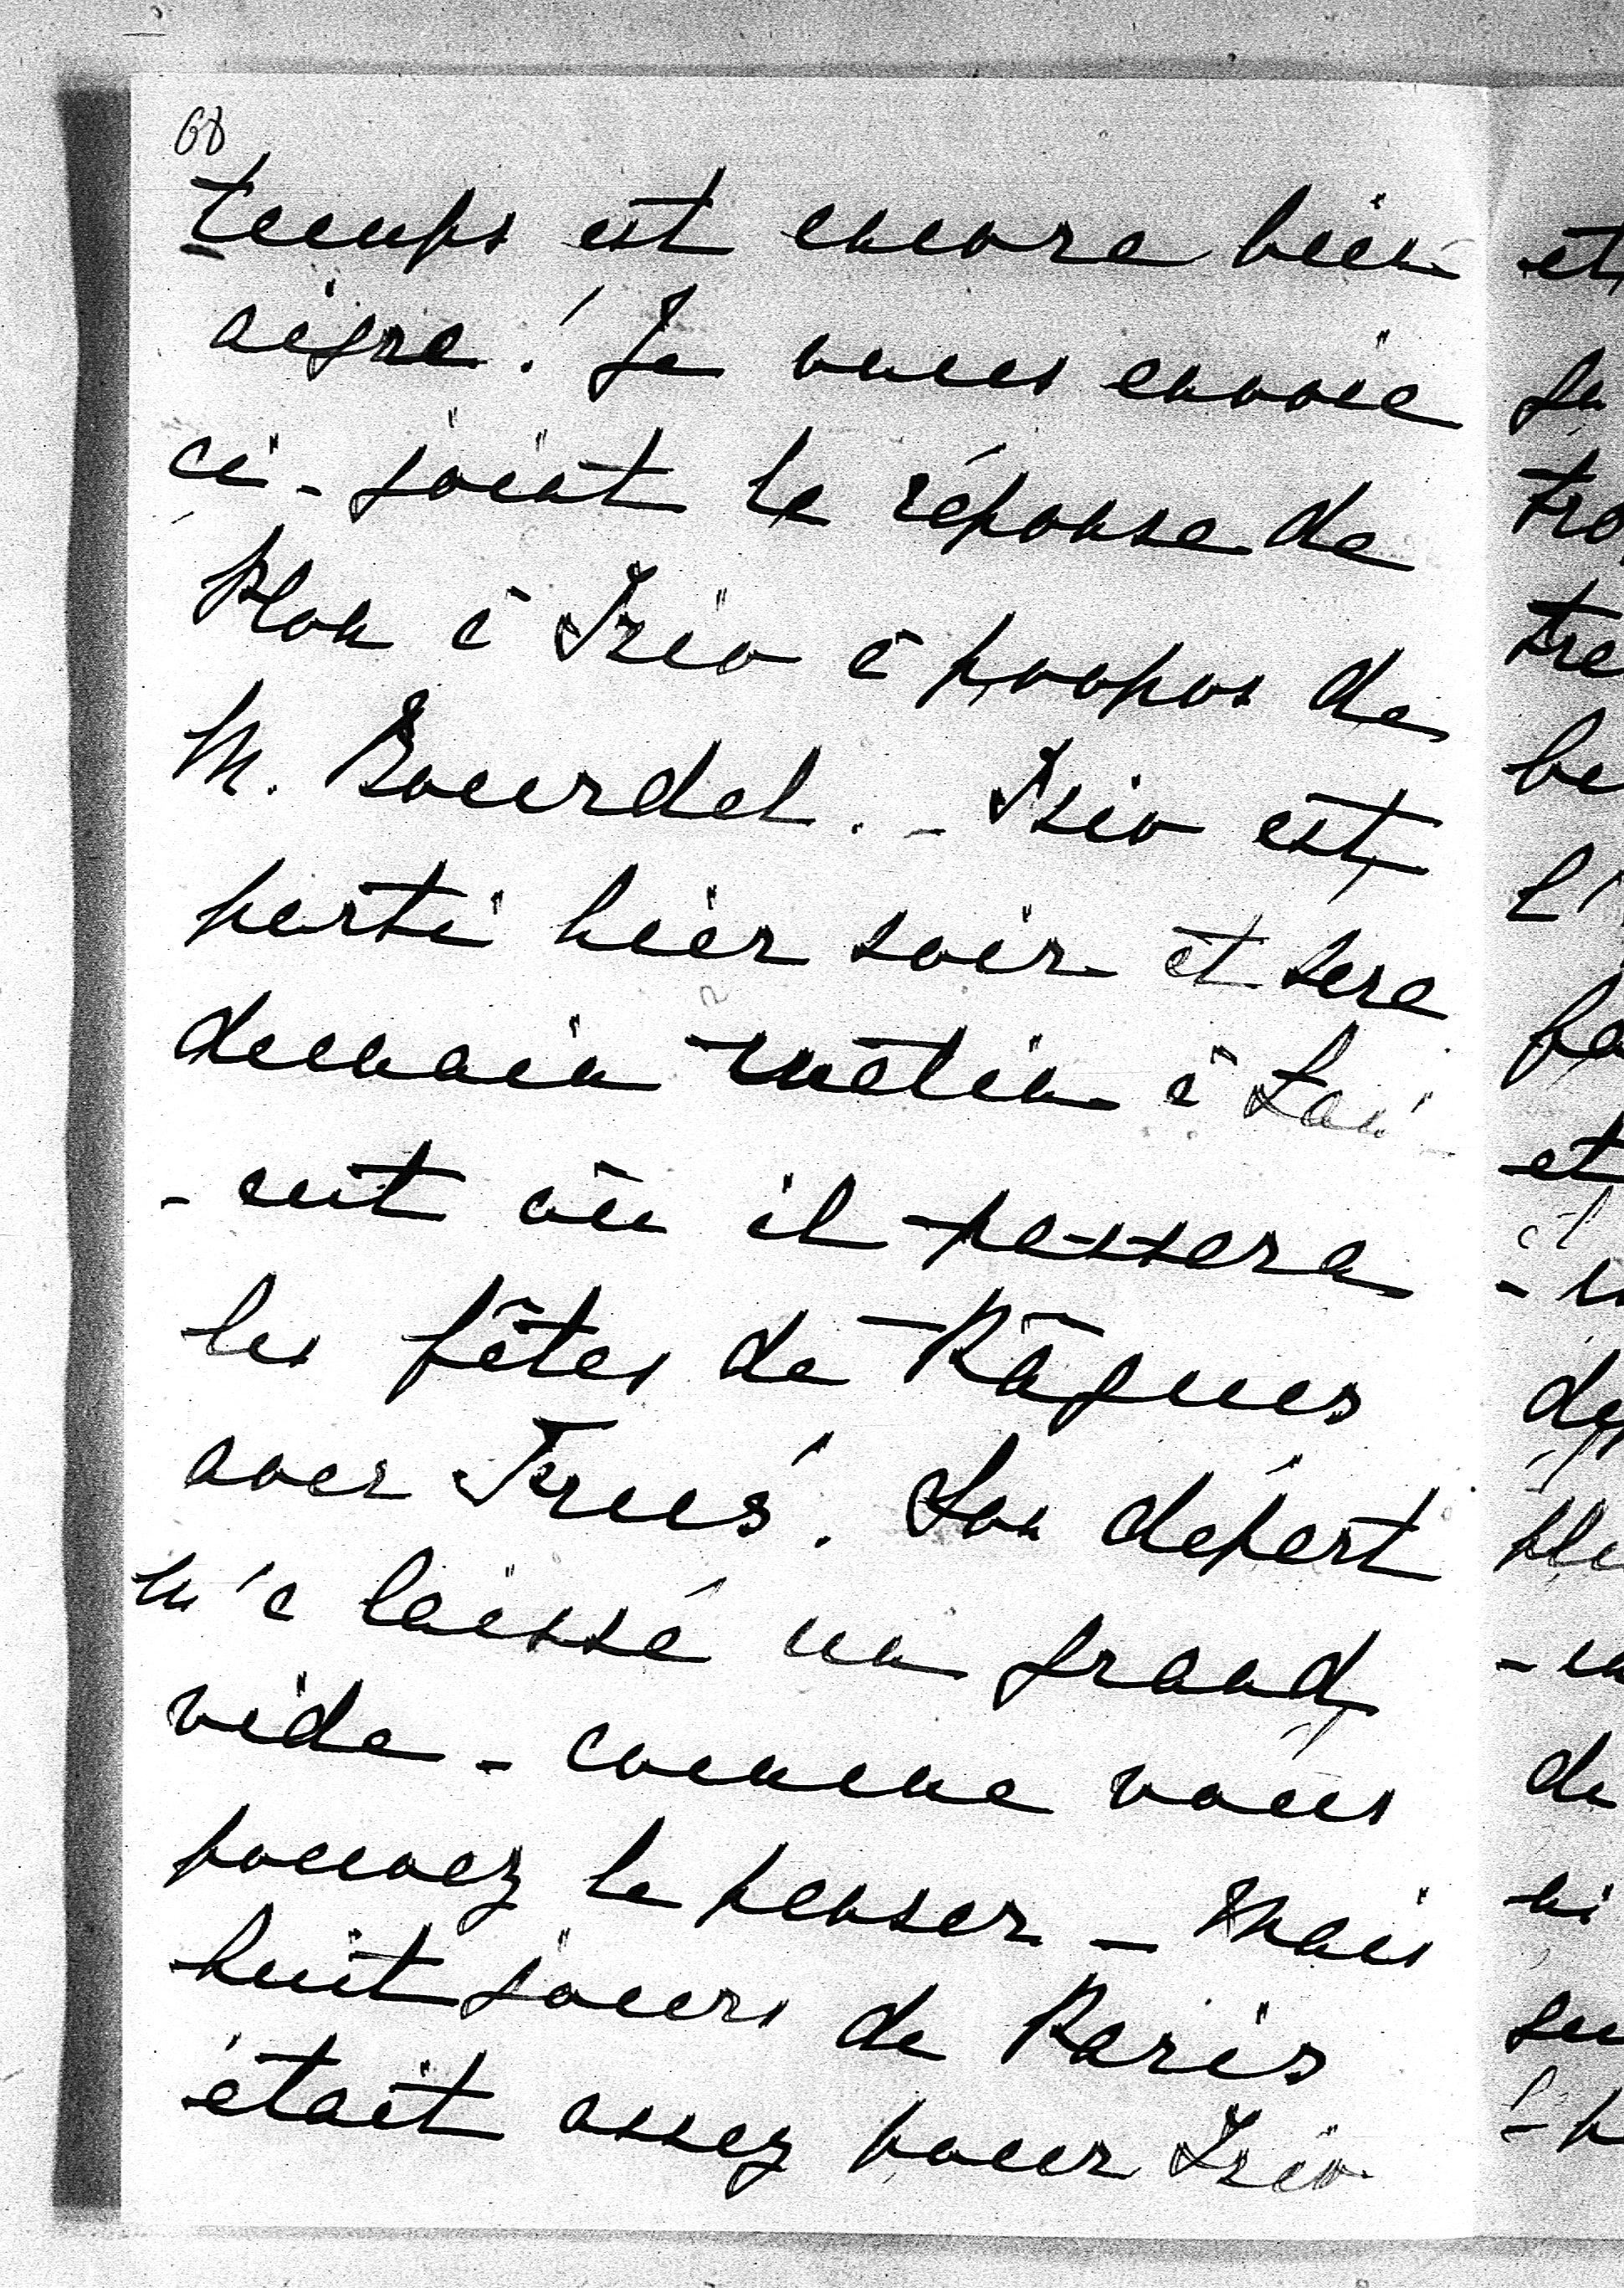 68
temps est encore bien
aigre! Je vous envoie
ci-joint la réponse de
Plon à Izio à propos de
M. Bourdel. - Izio est
parti hier soir et sera
demain matin à Lań-
-cut où il passera
les fêtes de Pâques
avec Truś. Son départ
m'a laissé un grand
vide - comme vous
pouvez le penser - mais
huit jours de Paris
était assez pour Izio